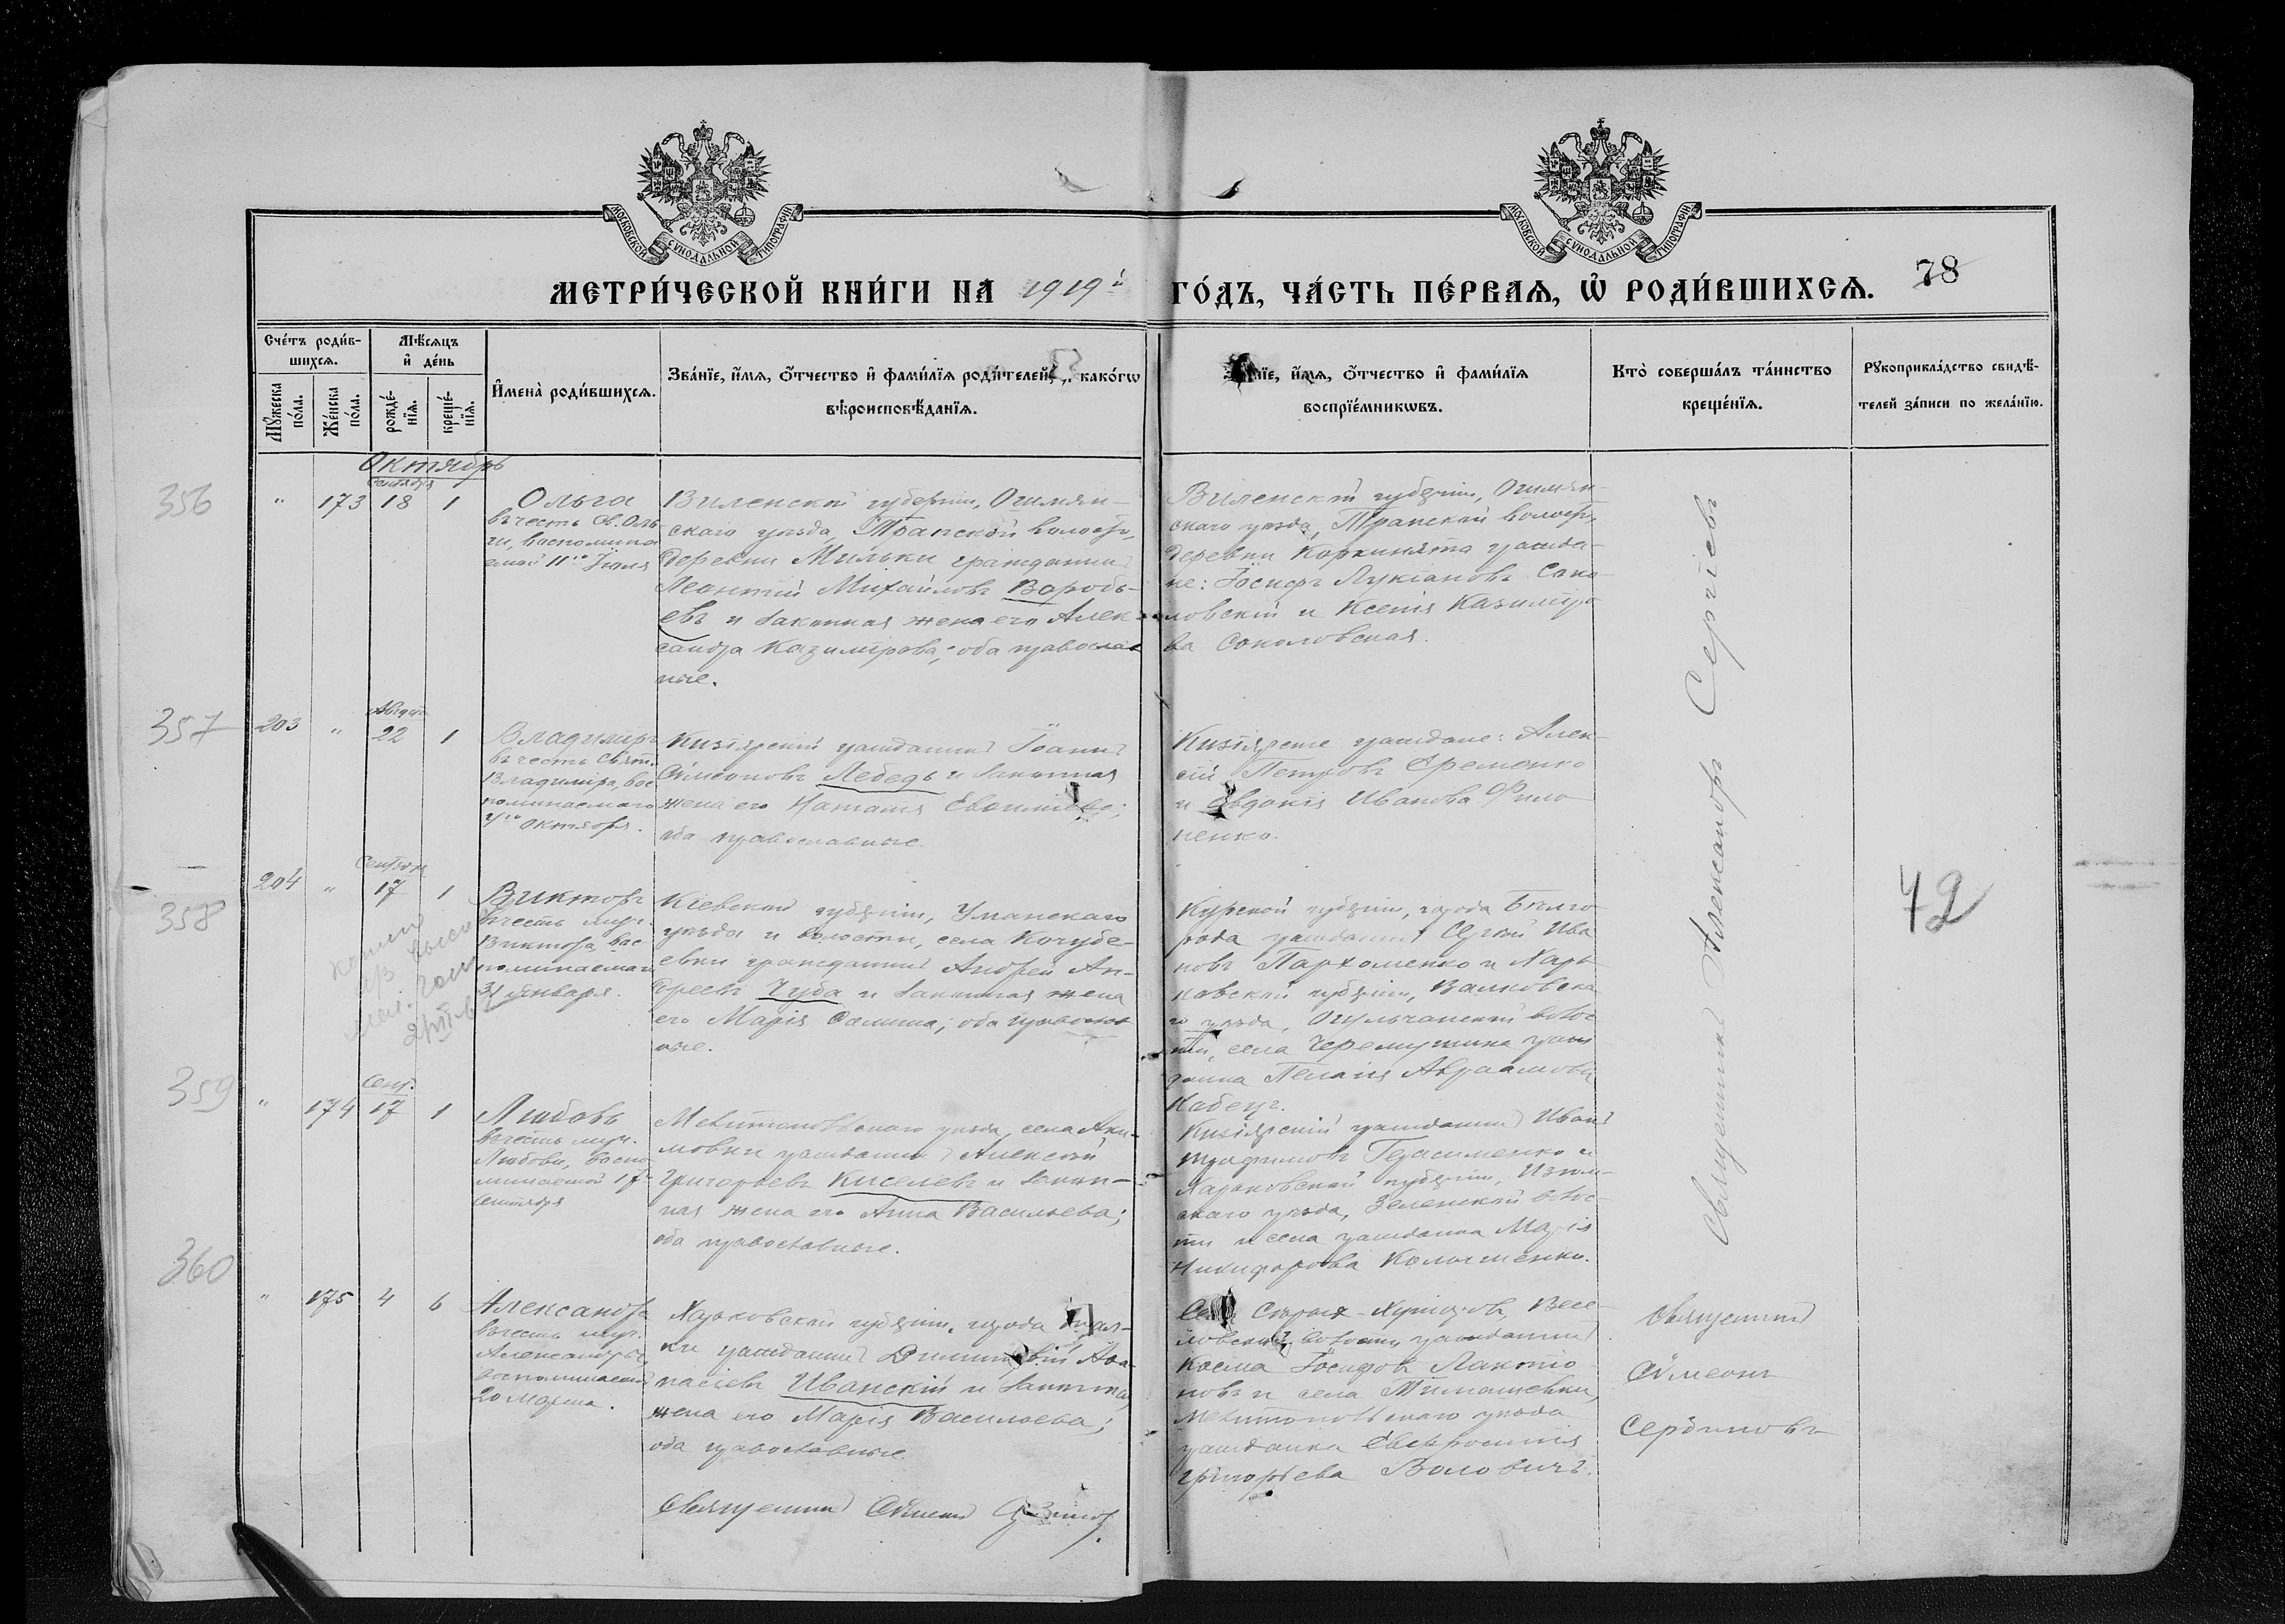 МОСКОВСКОЙ СѴНОДАЛЬНОЙ ТИПОГРАФІИ
МОСКОВСКОЙ СѴНОДАЛЬНОЙ ТИПОГРАФІИ
МЕТРИ́ЧЕСКОЙ КНИ́ГИ НА 1919й ГО́ДЪ, ЧА́СТЬ ПЕ́РВАЯ, Ѡ РОДИ́ВШИХСѦ.
78
Сче́тъ роди́в-
шихсѧ.
Мꙋ́жеска
по́ла.
Же́нска
по́ла.
Мѣ́сѧцъ
и де́нь
рожде́-
нїѧ.
креще́-
нїѧ.
И҆мена̀ роди́вшихсѧ.
Зва́нїе, и҆́мѧ, ѻ҆́тчество и҆ фами́лїѧ роди́телей, како́гѡ
вѣроисповѣ́данїѧ.
нїе, и҆́мѧ, ѻ҆́тчество и҆ фами́лїѧ
воспрїе́мникѡвъ.
Кто̀ соверша́лъ та́инство
креще́нїѧ.
Рꙋкоприкла́дство свидѣ́-
телей за́писи по жела́нїю.
Октябрь
356
"
173
Сентября
18
1
Ольга
въ честь св. Оль-
ги, воспомина-
емой 11го Іюля
Виленской губерніи, Ошмян-
скаго уезда, Трапской волости,
деревни Мильки гражданинъ
Леонтій Михайловъ Воробь-
евъ и законная жена его Алек-
сандра Казимірова; оба православ
ные.
Виленской губерніи, Ошмян-
скаго уезда, Трапской волости,
деревни Коркинята гражда-
не: Іосифъ Лукіановъ Соко-
ловскій и Ксенія Казиміро
ва Соколовская.
357
203
"
Августа
22
1
Владиміръ
въ честь Свят.
Владиміра, вос
поминаемаго
4го октября.
Кизіярскій гражданинъ Іоаннъ
Сѵмеоновъ Лебедь и законная
жена его Наталія
оба православные.
Кизіярские граждане: Алек-
сій Петровъ Еременко
и Евдокія Иванова Фило-
ненко.
358
204
"
Сентября
17
1
Викторъ
въ честь муч.
Виктора, вос
поминаемаго
31 января.
Кіевской губерніи, Уманскаго
уезда и волости, села Кочубе-
евки гражданинъ Андрей Ан-
дреевъ Чуба и законная жена
его Марія; оба православ
ные.
Курской губерніи, города Белго
рода гражданинъ Сергій Ива
новъ Пархоменко и Харь
ковской губерніи, Валковска
го уезда, Огульчанской волос
ти, села Черемушна граж
данка Пелагія Авраамова
Кабецъ.
359
"
174
Сент.
17
1
Любовь
въ честь муч.
Любови, воспо
минаемой 17
сентября
Мелитопольскаго уезда, села Аки-
мовки гражданинъ Алексій
Григорьевъ Киселевъ и закон-
ная жена его Анна Васильева;
оба православные.
Кизіярскій гражданинъ Иванъ
Трофимовъ Герасименко и
Харьковской губерніи, Изюм-
скаго уезда, волос-
ти и села гражданка Марія
Никифорова
360
"
175
4
6
Александра
въ честь муч.
Александры,
воспоминаемой
20 марта.
Харьковской губерніи, города
гражданинъ Димитрій Афа-
насіевъ Иванскій и законная
жена его Марія Васильева;
оба православные.
Весе-
ловской волости гражданинъ
Косма Іосифовъ Лакто-
новъ и села Тимашевки,
Мелитопольскаго уезда
гражданка Евфросинія
Григорьева Воловичъ.
Священникъ Александръ Сергіевъ
42
Священникъ
Сѵмеонъ
Сердиновъ
Священникъ Сѵмеонъ